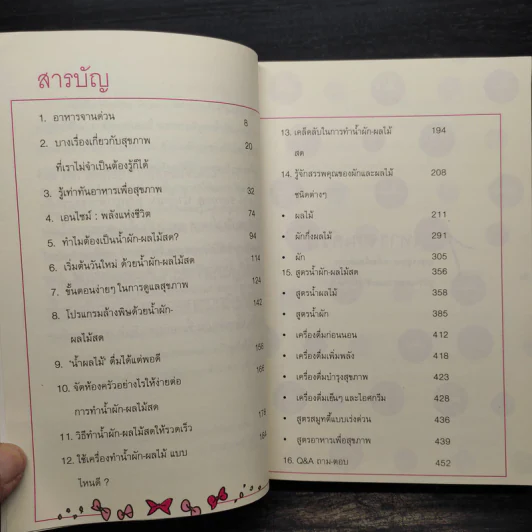 สารบัญ
1. อาหารจานด่วน 8
2. บางเรื่องเกี่ยวกับสุขภาพ 20
ที่เราไม่จำเป็นต้องรู้ก็ได้
3. รู้เท่าทันอาหารเพื่อสุขภาพ 32
4. เอนไซม์ : พลังแห่งชีวิต 74
5. ทำไมต้องเป็นน้ำผัก-ผลไม้สด? 94
6. เริ่มต้นวันใหม่ ด้วยน้ำผัก-ผลไม้สด 114
7. ขั้นตอนง่ายๆ ในการดูแลสุขภาพ 124
8. โปรแกรมล้างพิษด้วยน้ำผัก- 142
ผลไม้สด
9. "น้ำผลไม้" ดื่มได้แต่พอดี 156
10. จัดห้องครัวอย่างไรให้ง่ายต่อ
การทำน้ำผัก-ผลไม้สด
11. วิธีทำน้ำผัก-ผลไม้สดให้รวดเร็ว
12. ใช้เครื่องทำน้ำผัก-ผลไม้ แบบ
ไหนดี ?
13. เคล็ดลับในการทำน้ำผัก-ผลไม้ 194
สด
14. รู้จักสรรพคุณของผักและผลไม้ 208
ชนิดต่างๆ
• ผลไม้ 211
• ผักกึ่งผลไม้ 291
• ผัก 305
15. สูตรน้ำผัก-ผลไม้สด 356
• สูตรน้ำผลไม้ 358
• สูตรน้ำผัก 385
• เครื่องดื่มก่อนนอน 412
• เครื่องดื่มเพิ่มพลัง 418
• เครื่องดื่มบำรุงสุขภาพ 423
• เครื่องดื่มเย็นๆ และไอศกรีม 428
• สูตรสมูทตี้แบบเร่งด่วน 436
• สูตรอาหารเพื่อสุขภาพ 439
16. Q&A ถาม-ตอบ 452